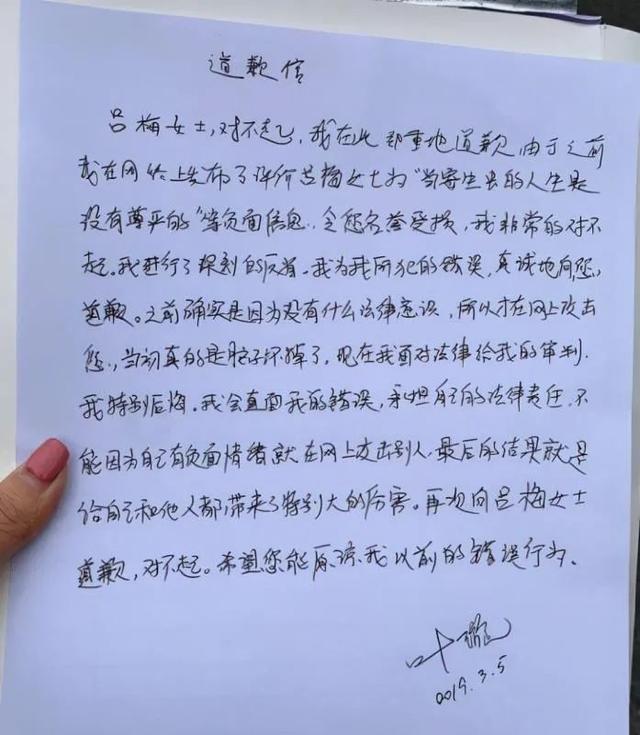 道歉信
吕梅女士,对不起,我在此郑重地道歉,由于之前
我在网络上发布了评价吕梅女士为"当寄生虫的人生是
没有尊严的"等负面信息,令您名誉受损,我非常的对不
起。我进行了深刻的反省。我为我所犯的错误,真诚地向您
道歉。之前确实是因为没有什么法律意识,所以才在网上攻击
您,当初真的是脑子坏掉了,现在我面对法律给我的审判.
我特别后悔。我会直面我的错误,承担自己的法律责任.不
能因为自己有负面情绪就在网上攻击别人,最后的结果就是
给自己和他人都带来了特别大的伤害。再次向吕梅女士
道歉,对不起。希望您能原谅我以前的错误行为.
叶璇
2019.3.5